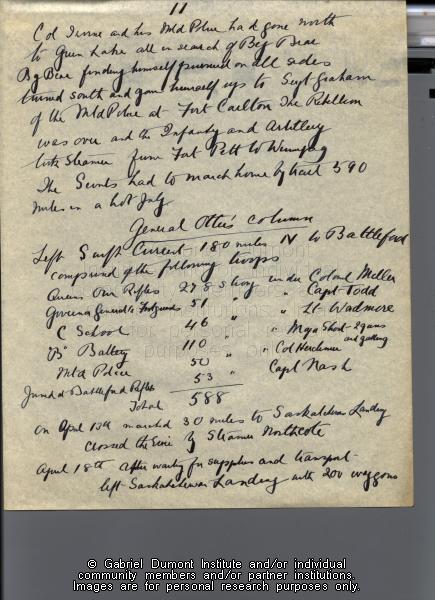 11
Col Irvine and his Mtd Police had gone north
to Green Lake all in search of Big Bear
Big Bear finding himself pursued on all sides
turned south and gave himself up to Supt Graham
of the Mtd Police at Fort Carlton The Rebellion
was over and the Infantry and Artillery
took Steamer from Fort Pitt to Winnipeg
The Scouts had to march home by trail 590
miles in a hot July
General Otter's column
Left Swift Current 180 miles N to Battleford
composed of the following troops
Queens Own Rifles 278 strong under Colonel Miller
Governor General's Footguards 51 " " Capt Todd
C School 46 " " Lt Wadmore
"B" Battery 110 " " Major Short 2 guns and gatling
Mtd Police 50 " " Col Herchmer
53 " Capt Nash
Joined at Battleford Rifles
Total 588
on April 13th marched 30 miles to Saskatchewan Landing
Crossed the River by Steamer Northcote
April 18th after waiting for supplies and transport
left Saskatchewan Landing with 200 waggons
© Gabriel Dumont Institute and/or individual
community members and/or partner institutions.
Images are for personal research purposes only.